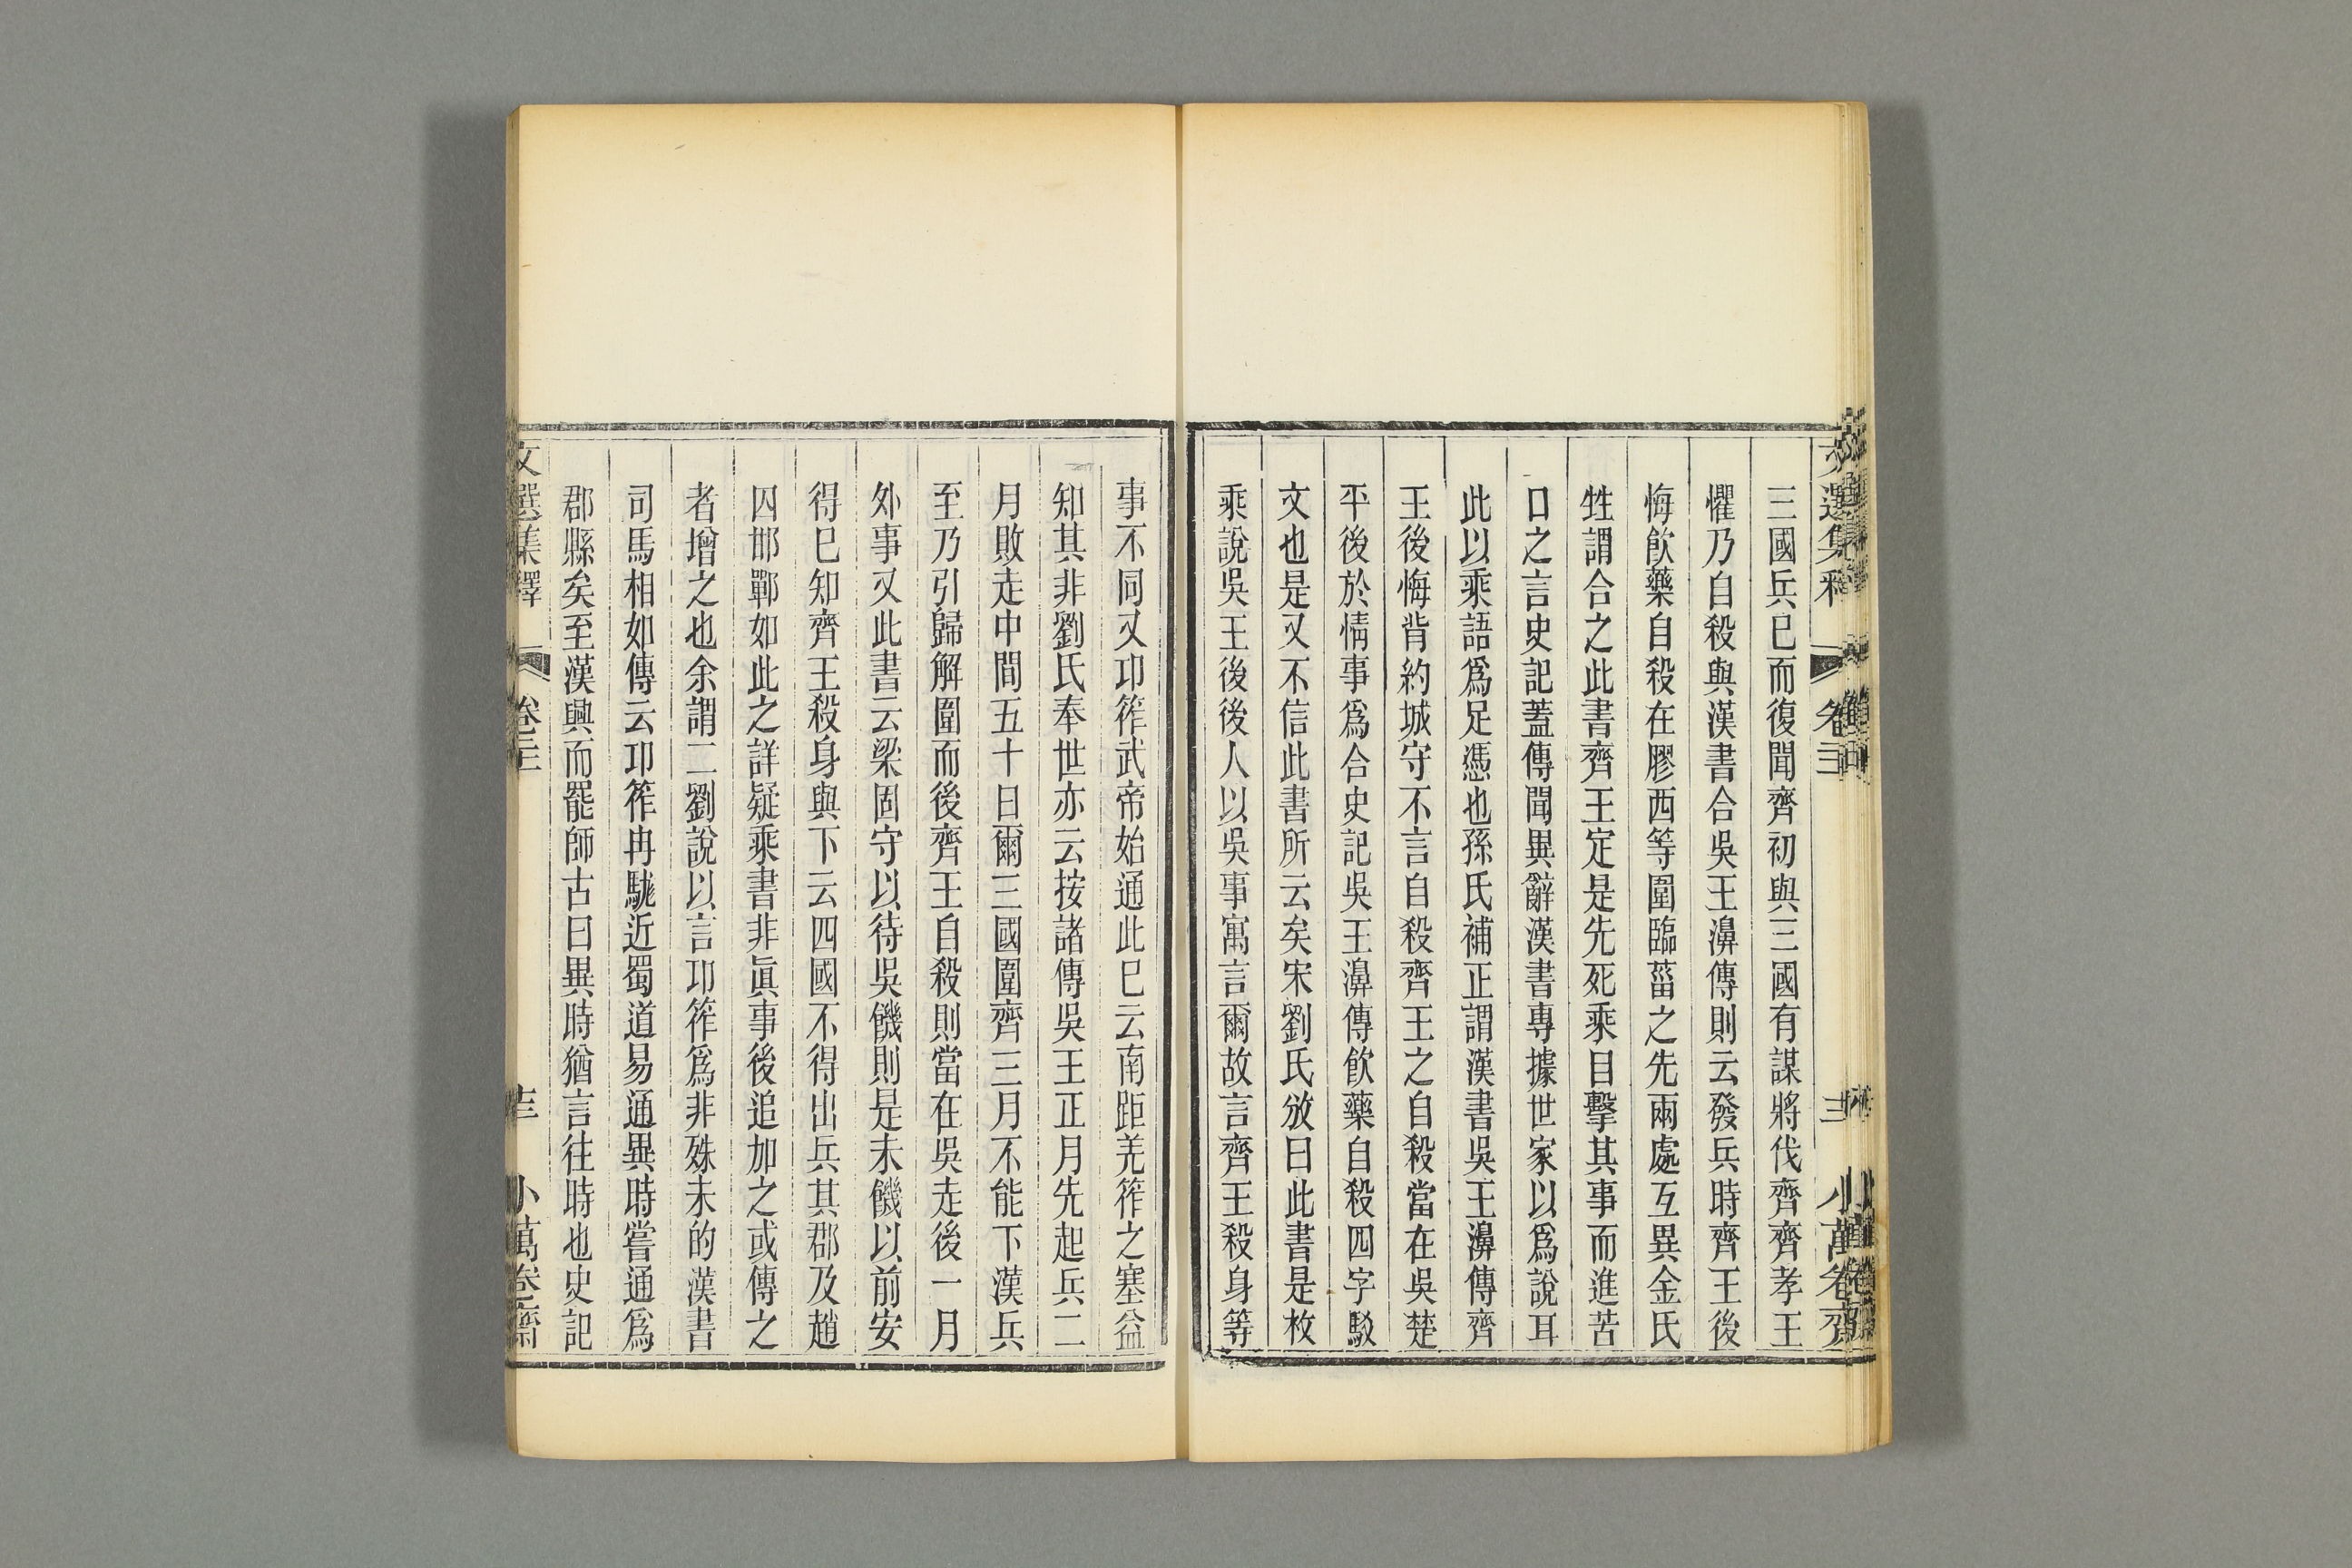 三國兵巳而復聞齊初與三國有謀將伐齊齊孝王
懼乃自殺與漢書合吳王濞傳則云發兵時齊王後
悔飮藥自殺在膠西等圍臨菑之先兩處互異金氏
甡謂合之此書齊王定是先死乘目擊其事而進苦
口之言史記蓋傳聞異辭漢書專據世家以爲說耳
此以乘語爲足憑也孫氏補正謂漢書吳王濞傳齊
王後悔背約城守不言自殺齊王之自殺當在吳楚
平後於情事爲合史記吳王濞傳飮藥自殺四字駁
文也是又不信此書所云矣宋劉氏攽曰此書是枚
乘說吳王後後人以吳事寓言爾故言齊王殺身等
事不同又卭筰武帝始通此巳云南距羌筰之塞益
知其非劉氏奉世亦云按諸傳吳王正月先起兵二
月敗走中間五十日爾三國圍齊三月不能下漢兵
至乃引歸解圍而後齊王自殺則當在吳走後一月
外事又此書云梁固守以待吳饑則是未饑以前安
得巳知齊王殺身與下云四國不得出兵其郡及趙
囚邯鄲如此之詳疑乘書非眞事後追加之或傳之
者增之也余謂二劉說以言卭筰爲非殊未的漢書
司馬相如傳云卭筰冉駹近蜀道易通異時嘗通爲
郡縣矣至漢興而罷師古曰異時猶言往時也史記
文選集釋 卷二十三 小萬卷齋